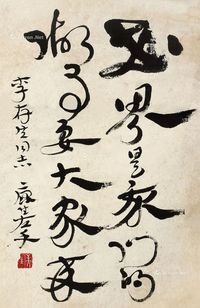 世界是我们的
做事要大家来
李存生同志 康生左手